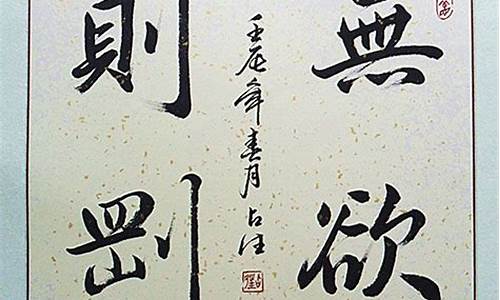 無欲
則剛
壬辰年春月占